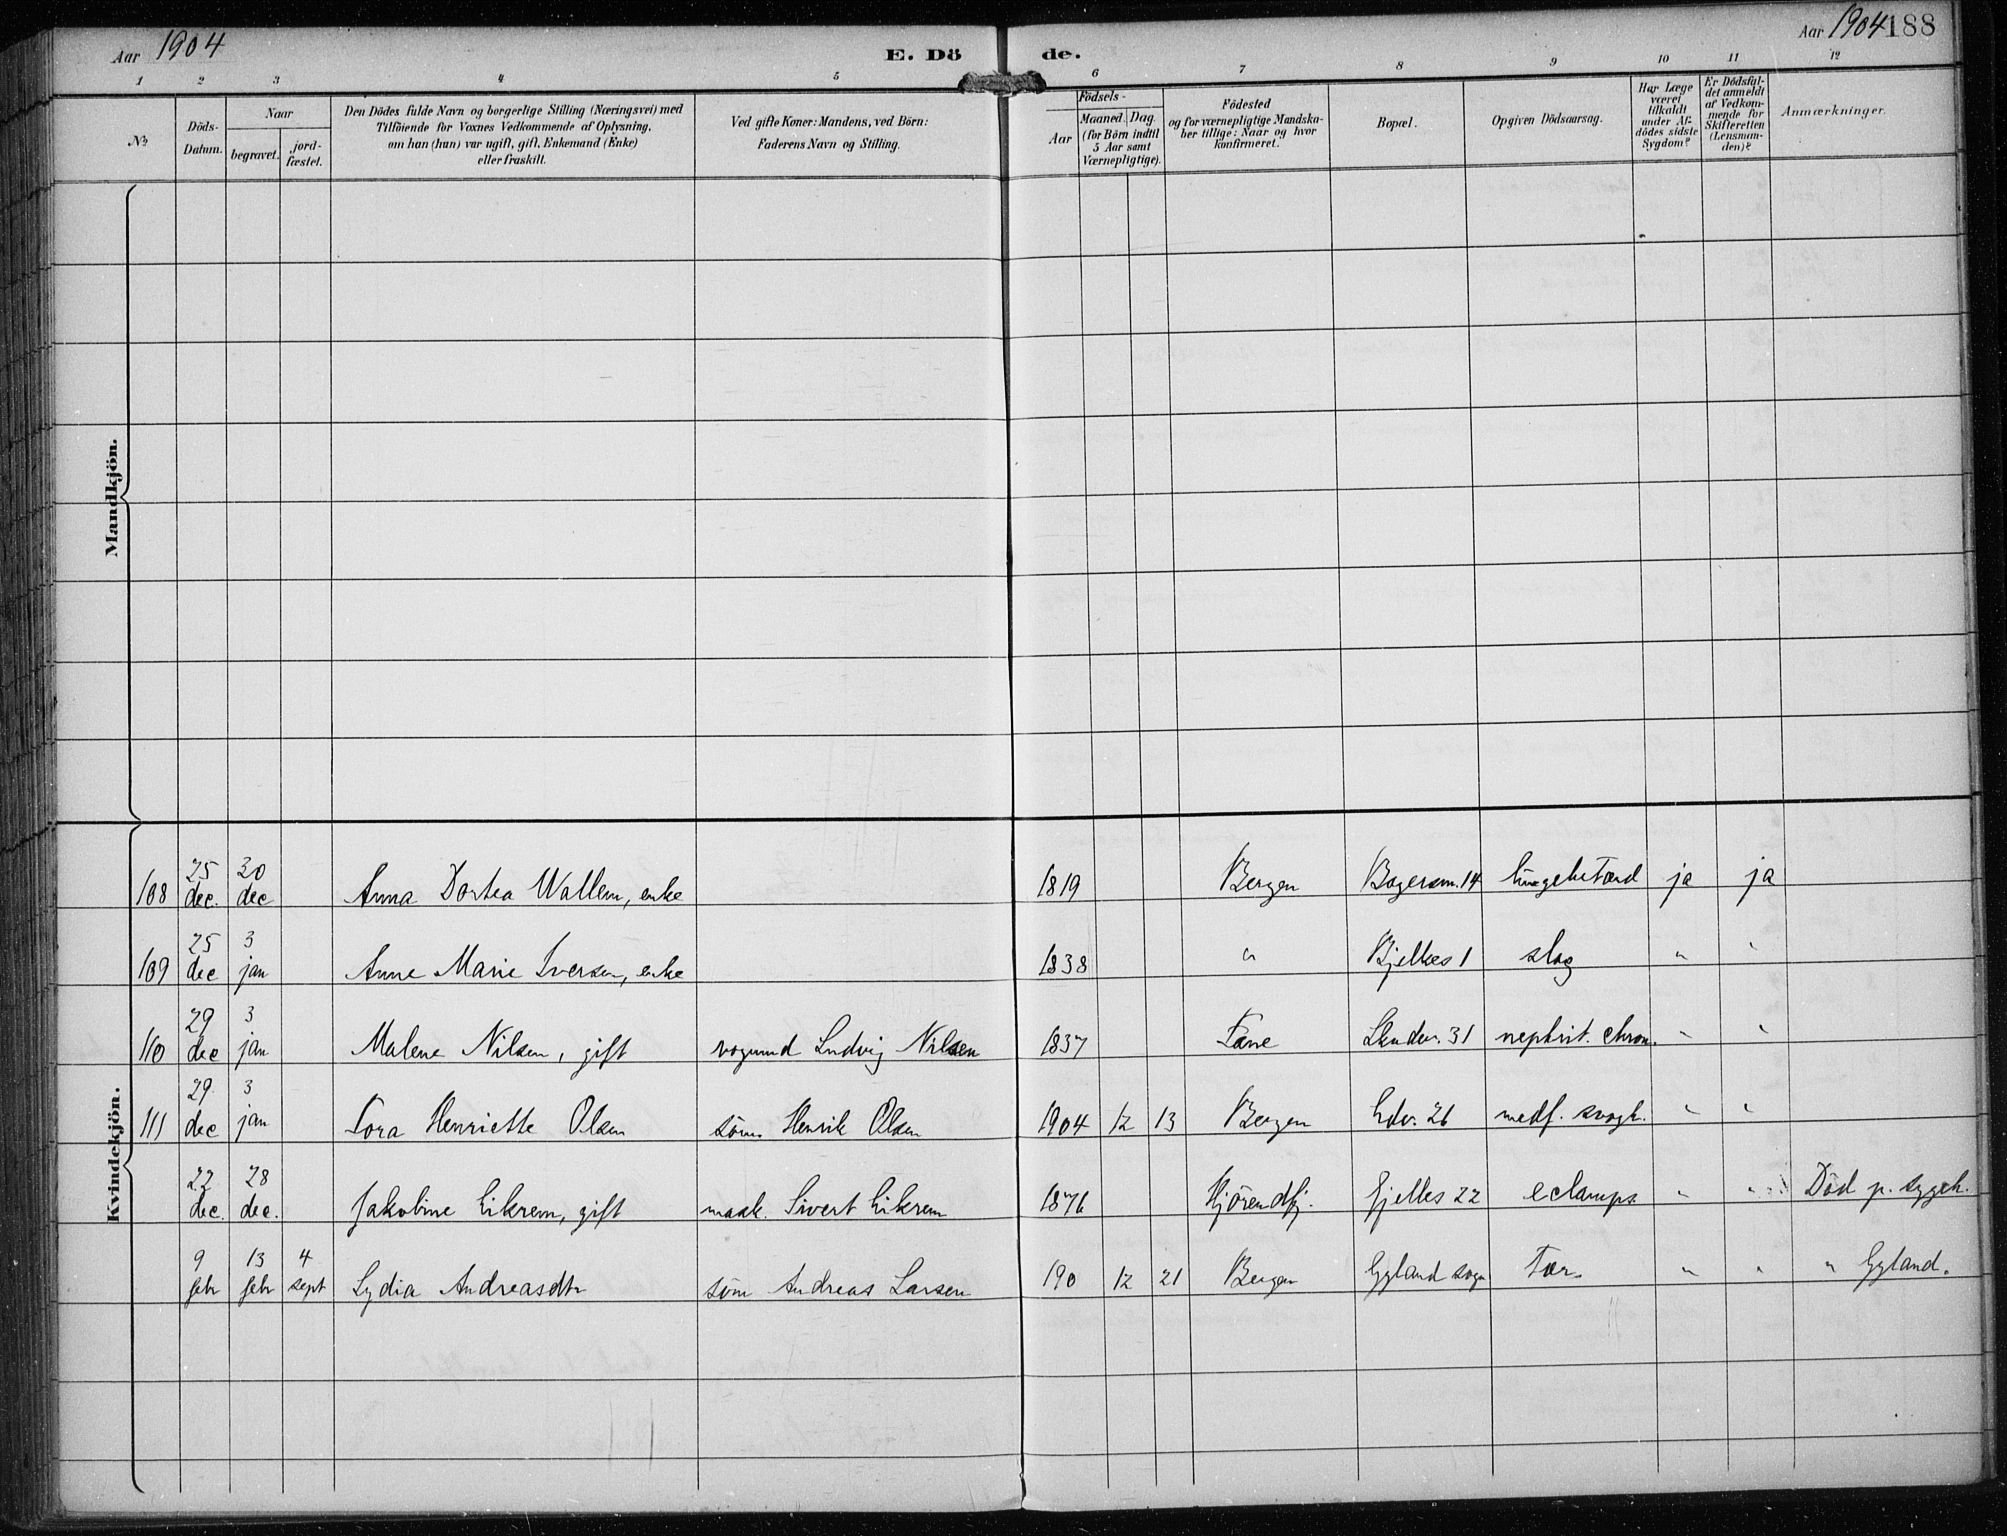 Aar 1904
E. Dö
de.
Aar 1904 188
1 2 3 4 5 6 7 8 9 10 11 12
№
Döds-
Datum.
Naar
begravet.
jord-
fæstet.
Den Dödes fulde Navn og borgerlige Stilling (Næringsvei) med
Tilföiende for Voxnes Vedkommende af Oplysning,
om han (hun) var ugift, gift, Enkemand (Enke)
eller fraskilt.
Ved gifte Koner: Mandens, ved Börn:
Faderens Navn og Stilling.
Födsels-
Aar
Maaned. Dag.
(for Börn indtil
5 Aar samt
Værnepligtige).
Födested
og for værnepligtige Mandska-
ber tillige: Naar og hvor
konfirmeret.
Bopæl.
Opgiven Dödsaarsag.
Har Læge
været
tilkaldt
under Af-
dödes sidste
Sygdom?
Er Dödsfal-
det anmeldt
af Vedkom-
mende for
Skifteretten
(Lensman-
den)?
Anmærkninger.
Mandkjön.
Kvindekjön.
25 30
108 dec. dec Anna Dortea Wallem, enke 1819 Bergen 14 ja ja
25 3
109 dec jan Anne Marie Iversen, enke 1838 " Bjelkes 1 slag " "
29 3
110 dec jan Malene Nilsen, gift vognmd Ludvig Nilsen 1837 Fane 31 nephrit. chron. " "
29. 3
111 dec jan Tora Henriette Olsen söm. Henrik Olsen 1904 12 13 Bergen 26 medf. svagh. " "
22 28
dec. dec. Jakobine Eikrem, gift mask. Sivert Eikrem 1876 Hjörendfj. Gjelles 22 eclamps " " Död p. sygeh.
9 13 4
febr febr sept Lydia Andreasdtr söm Andreas Larsen 190 12 21 Bergen Gyland sogn Tær. " " " Gyland.